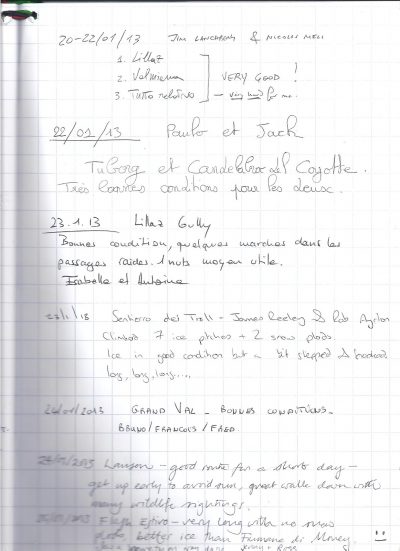 20-22/01/13 JIM & NICOLAS
1. Lillaz
2. Valmiana VERY GOOD !
3. Tutto relativo — very hard for me.
22/01/13 Paulo et Jack
Tuborg et Candelabro del Coyotte.
Très bonnes conditions pour les deux.
23.1.13 Lillaz Gully
Bonnes condition, quelques marches dans les
passages raides. 1 nuts moyen utile.
Isabelle et Antoine
Sentiero dei Troll - James & Rob
Climbed 7 ice pitches + 2 snow plods
Ice in good condition but a bit stepped & hooked
long, long, long....
24/01/2013 GRAND VAL - BONNES CONDITIONS.
BRUNO/FRANCOIS/FRED
Lauson - good route for a short day -
get up early to avoid sun, great walk down with
many wildlife sightings.
Flash Estivo - very long with no snow
better ice than Fumana di Money.